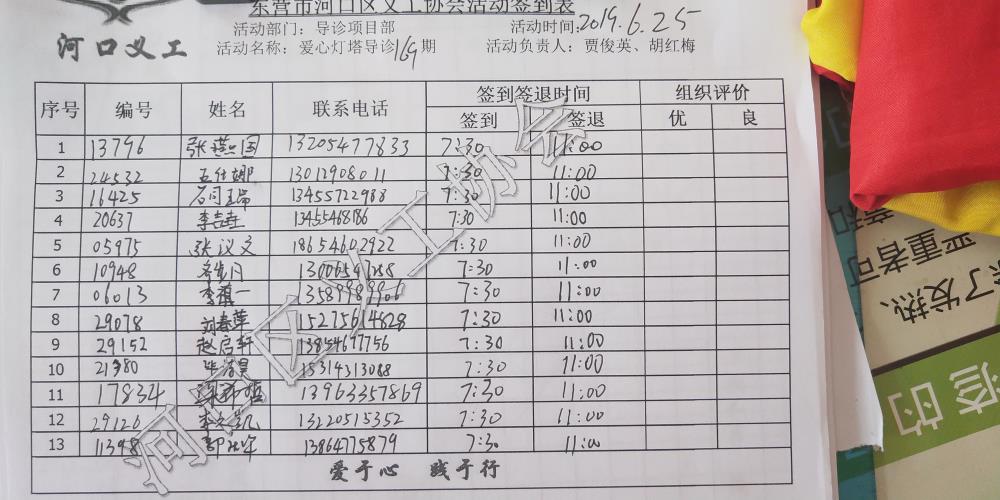 东营市河口区义工协会活动签到表
河口义工
活动部门：导诊项目部 活动时间：2019.6.25
活动名称：爱心灯塔导诊169期 活动负责人：贾俊英、胡红梅
序号 编号 姓名 联系电话 签到签退时间 组织评价
签到 签退 优 良
1 13796 张燕国 13205477833 7:30 11:00
2 24532 13012908011 7:30 11:00
3 16425 13455722988 7:30 11:00
4 20637 李吉寿 13455468186 7:30 11:00
5 05975 张议文 18654602922 7:30 11:00
6 10948 7:30 11:00
7 06013 李镇一 13589989906 7:30 11:00
8 29078 刘春莲 15275614828 7:30 11:00
9 29152 赵启轩 13854677756 7:30 11:00
10 21380 15314313088 7:30 11:00
11 17834 13963357869 7:30 11:00
12 29126 13220515352 7:30 11:00
13 11398 13864775879 7:30 11:00
爱于心 践于行
河口区义工协会
严重者可
了发热、
痘的